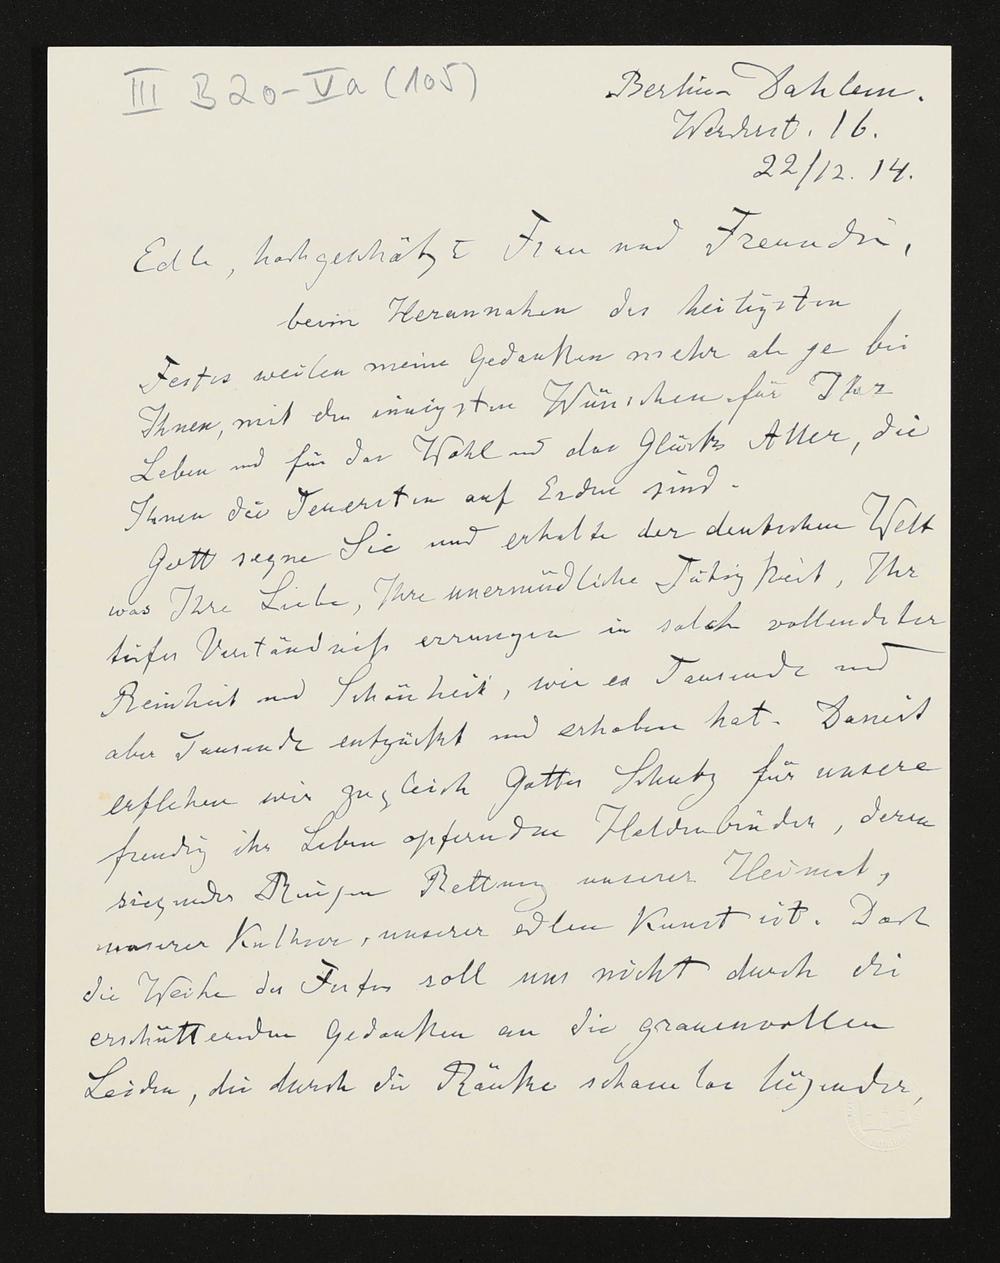 III B 20-Va (105)
Berlin-Dahlem.
Werderst. 16.
22/12. 14.
Edle, hochgeschätzte Frau und Freundin,
beim Herannahen des heiligsten
Festes weilen meine Gedanken mehr als je bei
Ihnen, mit den innigsten Wünschen für Ihr
Leben und für das Wohl und das Glück Aller, die
Ihnen die Teuersten auf Erden sind.
Gott segne Sie und erhalte der deutschen Welt
was Ihre Liebe, Ihre unermüdliche Tätigkeit, Ihr
tiefes Verständniß errungen in solch vollendeter
Reinheit und Schönheit, wie es Tausende und
aber Tausende entzückt und erhoben hat. Damit
erflehen wir zugleich Gottes Schutz für unsere
freudig ihr Leben opfernden Heldenbrüder, deren
siegendes Ringen Rettung unserer Heimat,
unserer Kultur, unserer edlen Kunst ist. Doch
die Weihe des Festes soll uns nicht durch die
erschütternden Gedanken an die grauenvollen
Leiden, die durch die Ränke schamlos lügender,